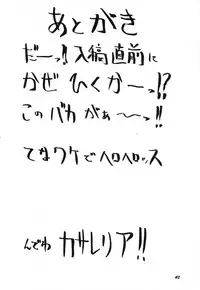 あとがき
だーっ!入稿直前に
かぜひくかーっ!?
このバカがぁ〜〜っ!!
てなワケでヘロヘロッス
んでわ カサレリア!!